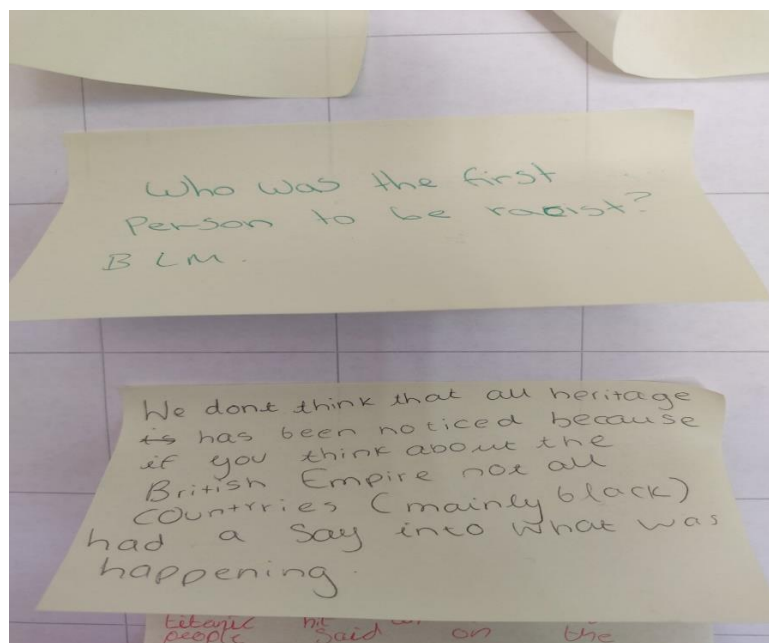 Who was the first
Person to be racist?
BLM.
We dont think that all heritage
is has been noticed because
if you think about the
British Empire not all
countrries (mainly black)
had a say into what was
happening.
titanic hit
people said on the